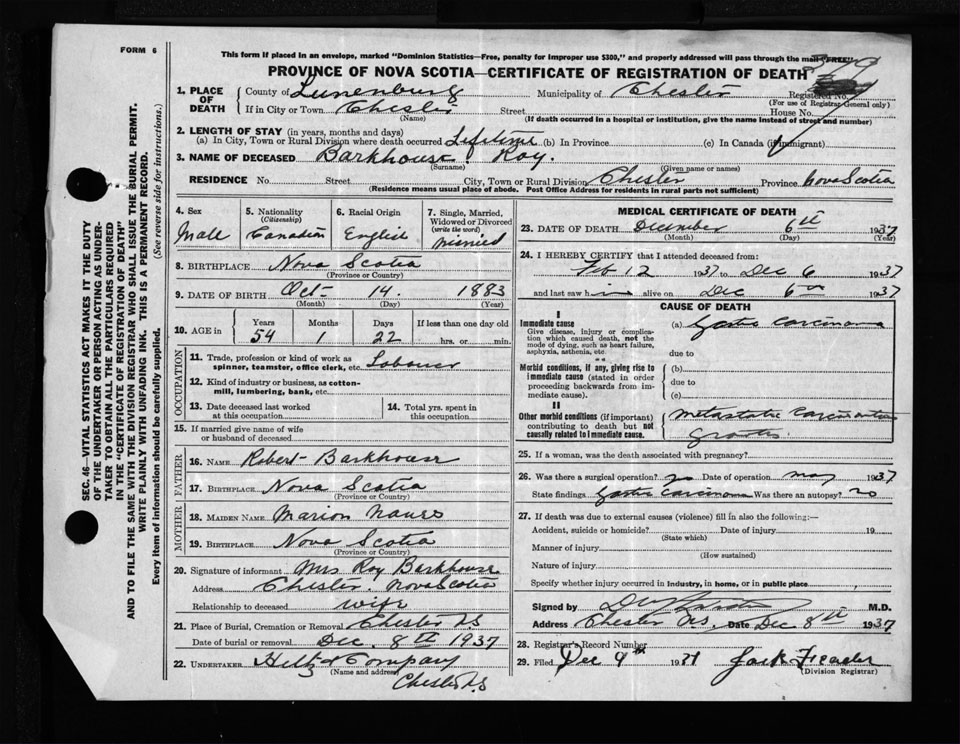 FORM 6
This form if placed in an envelope, marked "Dominion Statistics—Free, penalty for improper use $300," and properly addressed will pass through the mail "FREE"
PROVINCE OF NOVA SCOTIA—CERTIFICATE OF REGISTRATION OF DEATH
1. PLACE OF DEATH County of Lunenburg Municipality of Chester Registered No.
(For use of Registrar General only)
If in City or Town Chester Street House No.
(Name) (If death occurred in a hospital or institution, give the name instead of street and number)
2. LENGTH OF STAY (in years, months and days)
(a) In City, Town or Rural Division where death occurred Lifetime (b) In Province (c) In Canada (if immigrant)
3. NAME OF DECEASED Barkhouse, Roy.
(Surname) (Given name or names)
RESIDENCE No. Street City, Town or Rural Division Chester Province Nova Scotia
(Residence means usual place of abode. Post Office Address for residents in rural parts not sufficient)
4. Sex
Male
5. Nationality
(Citizenship)
Canadian
6. Racial Origin
English
7. Single, Married, Widowed or Divorced
(write the word)
married
8. BIRTHPLACE Nova Scotia
(Province or Country)
9. DATE OF BIRTH Oct 14. 1883
(Month) (Day) (Year)
10. AGE in Years Months Days If less than one day old
54 1 22 hrs. or min.
OCCUPATION
11. Trade, profession or kind of work as spinner, teamster, office clerk, etc. Labourer
12. Kind of industry or business, as cotton-mill, lumbering, bank, etc.
13. Date deceased last worked at this occupation
14. Total yrs. spent in this occupation
15. If married give name of wife or husband of deceased
FATHER
16. NAME Robert Barkhouse
17. BIRTHPLACE Nova Scotia
(Province or Country)
MOTHER
18. MAIDEN NAME Marion
19. BIRTHPLACE Nova Scotia
(Province or Country)
20. Signature of informant Mrs Roy Barkhouse
Address Chester. Nova Scotia
Relationship to deceased wife
21. Place of Burial, Cremation or Removal Chester N.S
Date of burial or removal Dec. 8th 1937
22. UNDERTAKER & Company
(Name and address)
Chester N.S
MEDICAL CERTIFICATE OF DEATH
23. DATE OF DEATH December 6th 1937
(Month) (Day) (Year)
24. I HEREBY CERTIFY that I attended deceased from:
Feb 12 1937 to Dec 6 1937
and last saw him alive on Dec 6th 1937
CAUSE OF DEATH
I
Immediate cause
Give disease, injury or complication which caused death, not the mode of dying, such as heart failure, asphyxia, asthenia, etc.
(a) Gastric Carcinoma
due to
Morbid conditions, if any, giving rise to immediate cause (stated in order proceeding backwards from immediate cause).
(b)
due to
(c)
II
Other morbid conditions (if important) contributing to death but not causally related to immediate cause.
metastatic Carcinomatous
growths
25. If a woman, was the death associated with pregnancy?
26. Was there a surgical operation? Date of operation May 1937
State findings Gastric Carcinoma Was there an autopsy? no
27. If death was due to external causes (violence) fill in also the following:—
Accident, suicide or homicide? Date of injury 19
(State which)
Manner of injury
(How sustained)
Nature of injury
Specify whether injury occurred in industry, in home, or in public place
Signed by M.D.
Address Chester N.S. Date Dec 8th 1937
28. Registrar's Record Number
29. Filed Dec 9th 1937 Jack
(Division Registrar)
SEC. 46—VITAL STATISTICS ACT MAKES IT THE DUTY
OF THE UNDERTAKER OR PERSON ACTING AS UNDER-
TAKER TO OBTAIN ALL THE PARTICULARS REQUIRED
IN THE "CERTIFICATE OF REGISTRATION OF DEATH"
AND TO FILE THE SAME WITH THE DIVISION REGISTRAR WHO SHALL ISSUE THE BURIAL PERMIT.
WRITE PLAINLY WITH UNFADING INK. THIS IS A PERMANENT RECORD.
Every item of information should be carefully supplied. (See reverse side for instructions.)